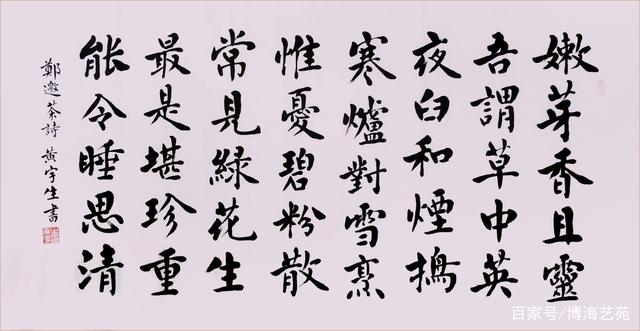 嫩芽香且靈
吾謂草中英
夜臼和煙搗
寒爐對雪烹
惟憂碧粉散
常見綠花生
最是堪珍重
能令睡思清
鄭邀茶詩 黄宇生書
百家号/博海艺苑